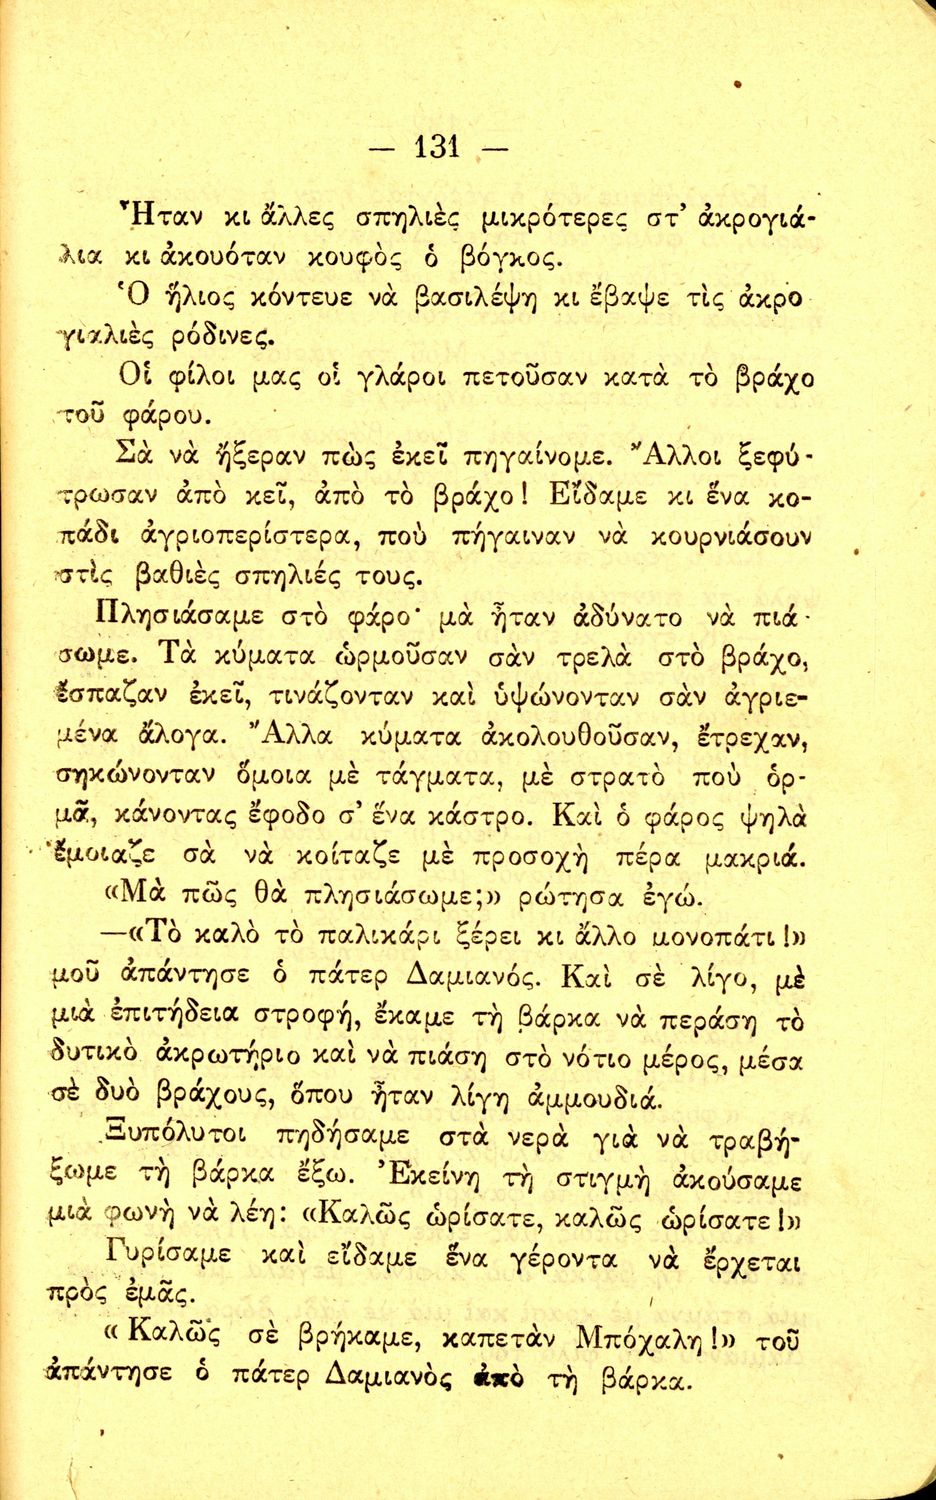 — 131 —
Ἦταν κι ἄλλες σπηλιὲς μικρότερες στ’ ἀκρογιά-
λια κι ἀκουόταν κουφὸς ὁ βόγκος.
Ὁ ἥλιος κόντευε νὰ βασιλέψη κι ἔβαψε τὶς ἀκρο
γιαλιὲς ρόδινες.
Οἱ φίλοι μας οἱ γλάροι πετοῦσαν κατὰ τὸ βράχο
τοῦ φάρου.
Σὰ νὰ ἤξεραν πὼς ἐκεῖ πηγαίνομε. Ἄλλοι ξεφύ-
τρωσαν ἀπὸ κεῖ, ἀπὸ τὸ βράχο! Εἴδαμε κι ἕνα κο-
πάδι ἀγριοπερίστερα, ποὺ πήγαιναν νὰ κουρνιάσουν
στὶς βαθιὲς σπηλιές τους.
Πλησιάσαμε στὸ φάρο· μὰ ἦταν ἀδύνατο νὰ πιά-
σωμε. Τὰ κύματα ὡρμοῦσαν σὰν τρελὰ στὸ βράχο,
ἔσπαζαν ἐκεῖ, τινάζονταν καὶ ὑψώνονταν σὰν ἀγριε-
μένα ἄλογα. Ἄλλα κύματα ἀκολουθοῦσαν, ἔτρεχαν,
σηκώνονταν ὅμοια μὲ τάγματα, μὲ στρατὸ ποὺ ὁρ-
μᾶ, κάνοντας ἔφοδο σ’ ἕνα κάστρο. Καὶ ὁ φάρος ψηλὰ
ἔμοιαζε σὰ νὰ κοίταζε μὲ προσοχὴ πέρα μακριά.
«Μὰ πῶς θὰ πλησιάσωμε;» ρώτησα ἐγώ.
—«Τὸ καλὸ τὸ παλικάρι ξέρει κι ἄλλο μονοπάτι!»
μοῦ ἀπάντησε ὁ πάτερ Δαμιανός. Καὶ σὲ λίγο, μὲ
μιὰ ἐπιτήδεια στροφή, ἔκαμε τὴ βάρκα νὰ περάση τὸ
δυτικὸ ἀκρωτήριο καὶ νὰ πιάση στὸ νότιο μέρος, μέσα
σὲ δυὸ βράχους, ὅπου ἦταν λίγη ἀμμουδιά.
Ξυπόλυτοι πηδήσαμε στὰ νερὰ γιὰ νὰ τραβή-
ξωμε τὴ βάρκα ἔξω. Ἐκείνη τὴ στιγμὴ ἀκούσαμε
μιὰ φωνὴ νὰ λέη: «Καλῶς ὡρίσατε, καλῶς ὡρίσατε!»
Γυρίσαμε καὶ εἴδαμε ἕνα γέροντα νὰ ἔρχεται
πρὸς ἐμᾶς.
«Καλῶς σὲ βρήκαμε, καπετὰν Μπόχαλη!» τοῦ
ἀπάντησε ὁ πάτερ Δαμιανὸς ἀπὸ τὴ βάρκα.